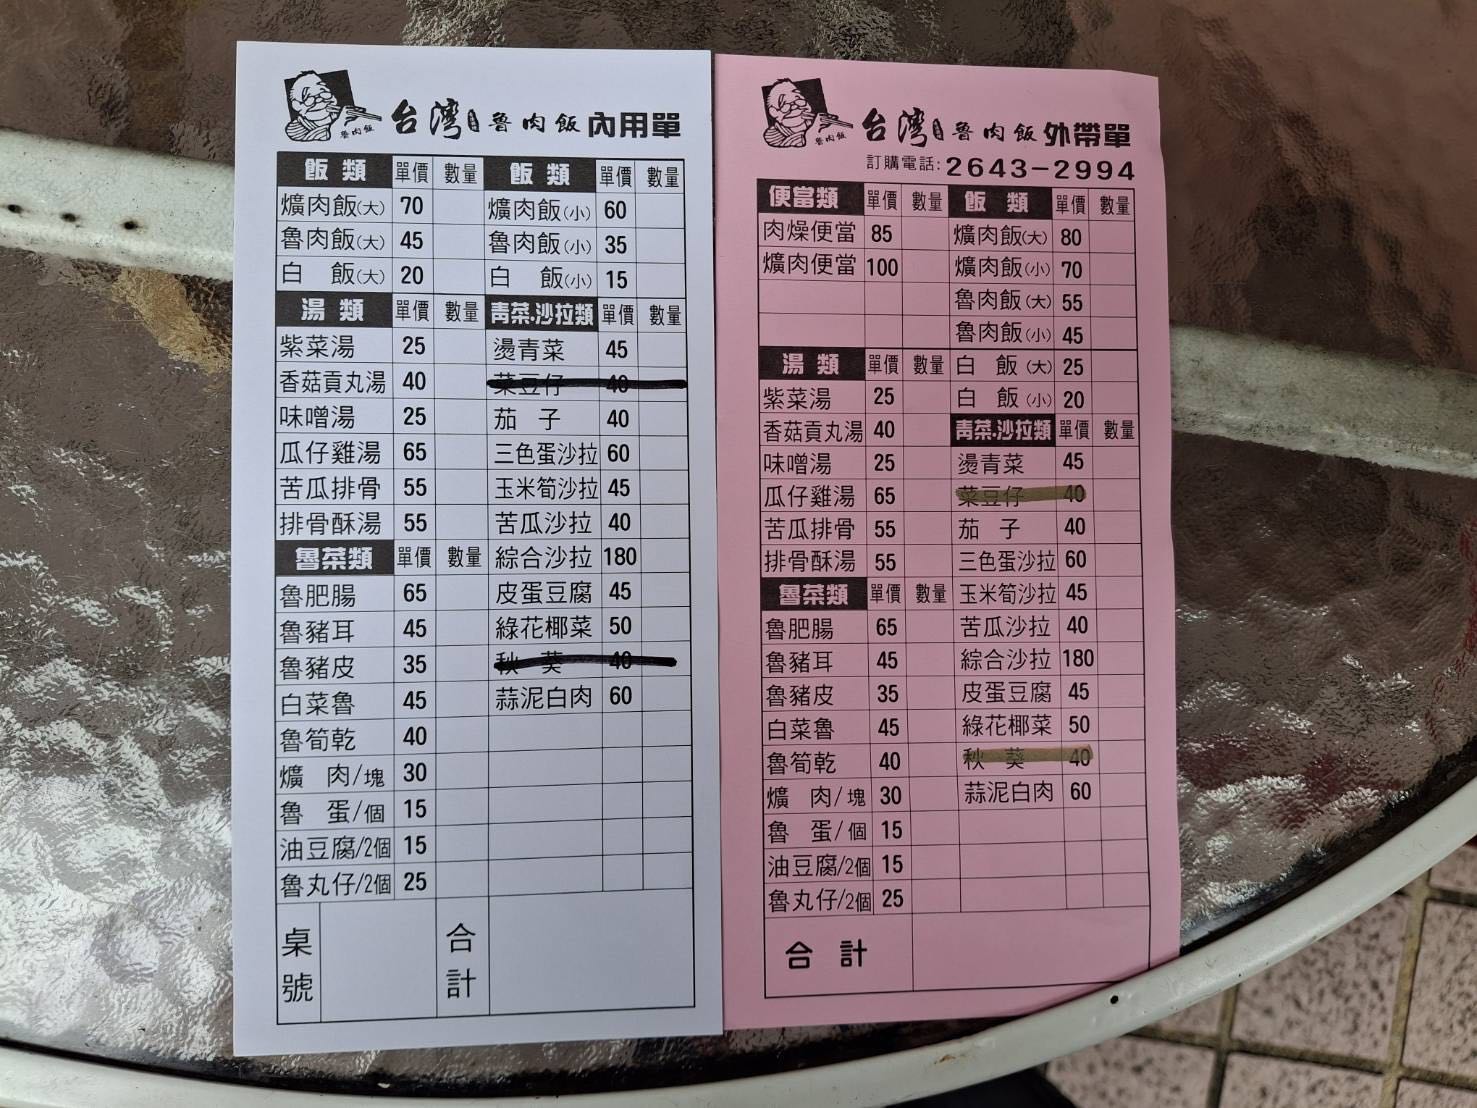 魯肉飯
台灣魯肉飯內用單
飯類 單價 數量 飯類 單價 數量
爌肉飯(大) 70 爌肉飯(小) 60
魯肉飯(大) 45 魯肉飯(小) 35
白 飯(大) 20 白 飯(小) 15
湯類 單價 數量 青菜.沙拉類 單價 數量
紫菜湯 25 燙青菜 45
香菇貢丸湯 40 菜豆仔 40
味噌湯 25 茄子 40
瓜仔雞湯 65 三色蛋沙拉 60
苦瓜排骨 55 玉米筍沙拉 45
排骨酥湯 55 苦瓜沙拉 40
魯菜類 單價 數量 綜合沙拉 180
魯肥腸 65 皮蛋豆腐 45
魯豬耳 45 綠花椰菜 50
魯豬皮 35 秋葵 40
白菜魯 45 蒜泥白肉 60
魯筍乾 40
爌 肉/塊 30
魯 蛋/個 15
油豆腐/2個 15
魯丸仔/2個 25
桌號 合計
魯肉飯
台灣魯肉飯外帶單
訂購電話:2643-2994
便當類 單價 數量 飯類 單價 數量
肉燥便當 85 爌肉飯(大) 80
爌肉便當 100 爌肉飯(小) 70
魯肉飯(大) 55
魯肉飯(小) 45
湯類 單價 數量 白 飯(大) 25
紫菜湯 25 白 飯(小) 20
香菇貢丸湯 40 青菜.沙拉類 單價 數量
味噌湯 25 燙青菜 45
瓜仔雞湯 65 菜豆仔 40
苦瓜排骨 55 茄子 40
排骨酥湯 55 三色蛋沙拉 60
魯菜類 單價 數量 玉米筍沙拉 45
魯肥腸 65 苦瓜沙拉 40
魯豬耳 45 綜合沙拉 180
魯豬皮 35 皮蛋豆腐 45
白菜魯 45 綠花椰菜 50
魯筍乾 40 秋葵 40
爌 肉/塊 30 蒜泥白肉 60
魯 蛋/個 15
油豆腐/2個 15
魯丸仔/2個 25
合計